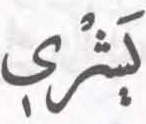 يَشْرِي